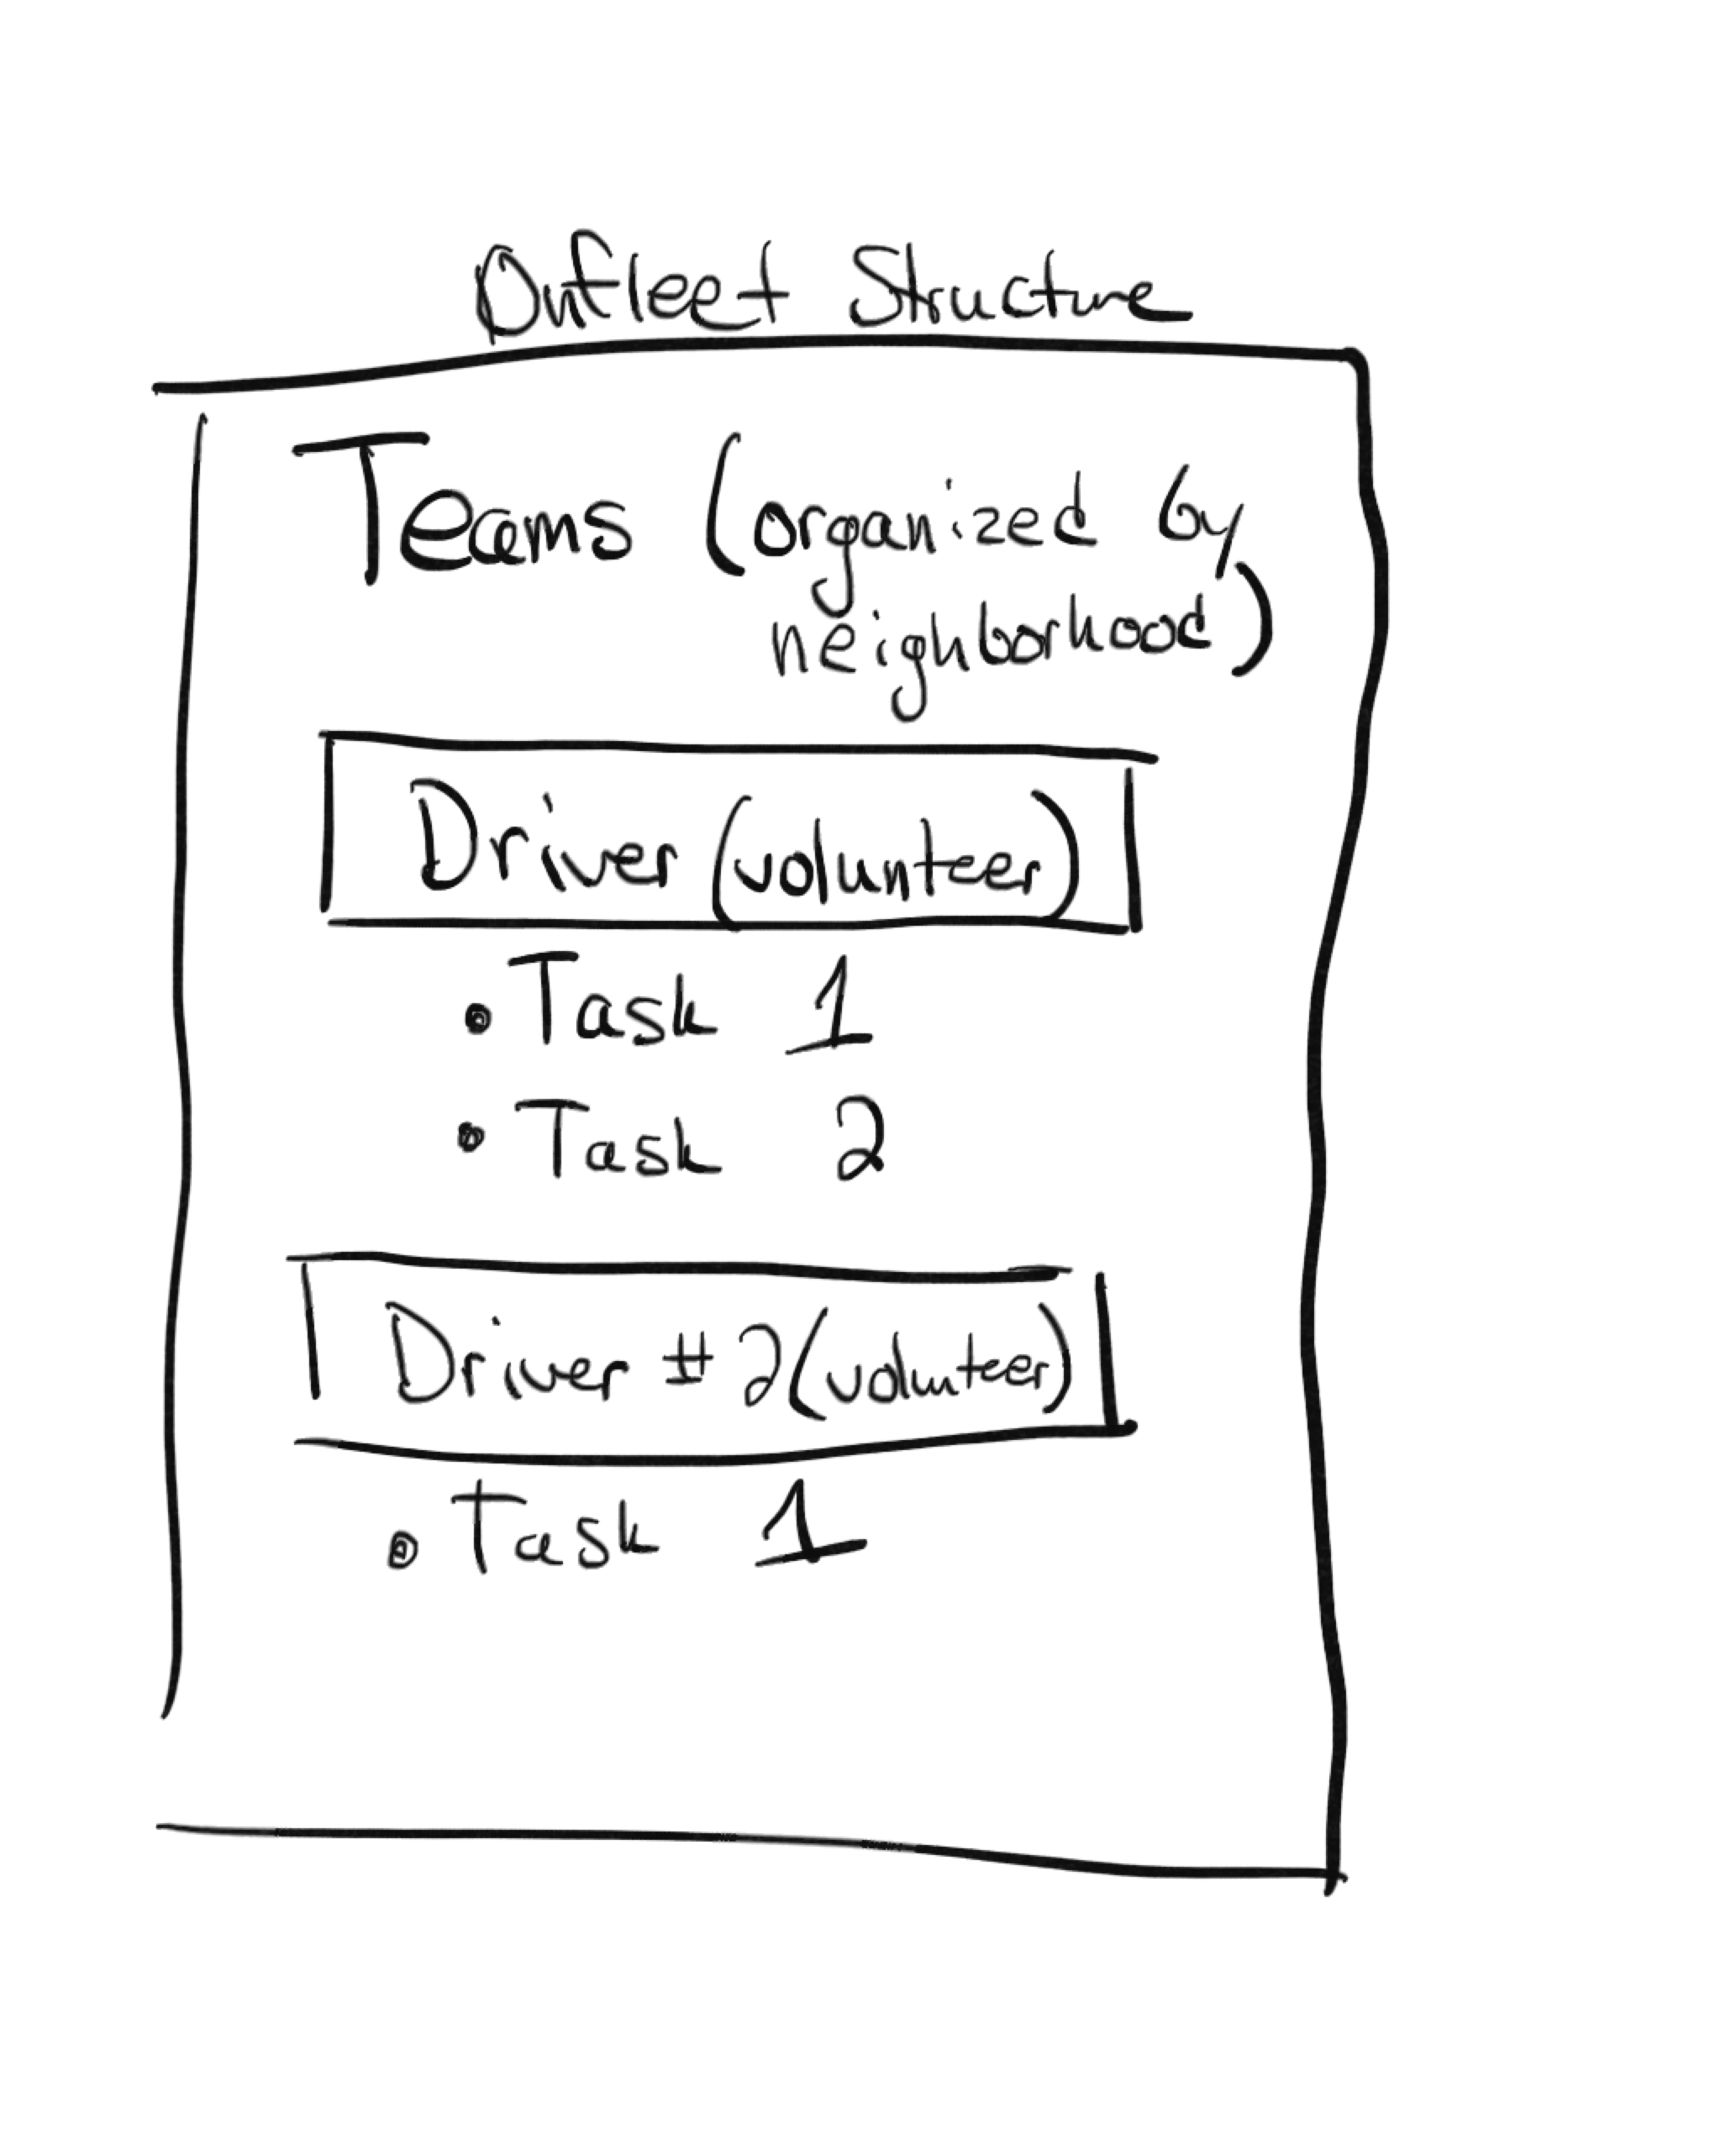 Onfleet Structure
Teams (organized by
neighborhood)
Driver (volunteer)
• Task 1
• Task 2
Driver # 2 (volunteer)
• Task 1